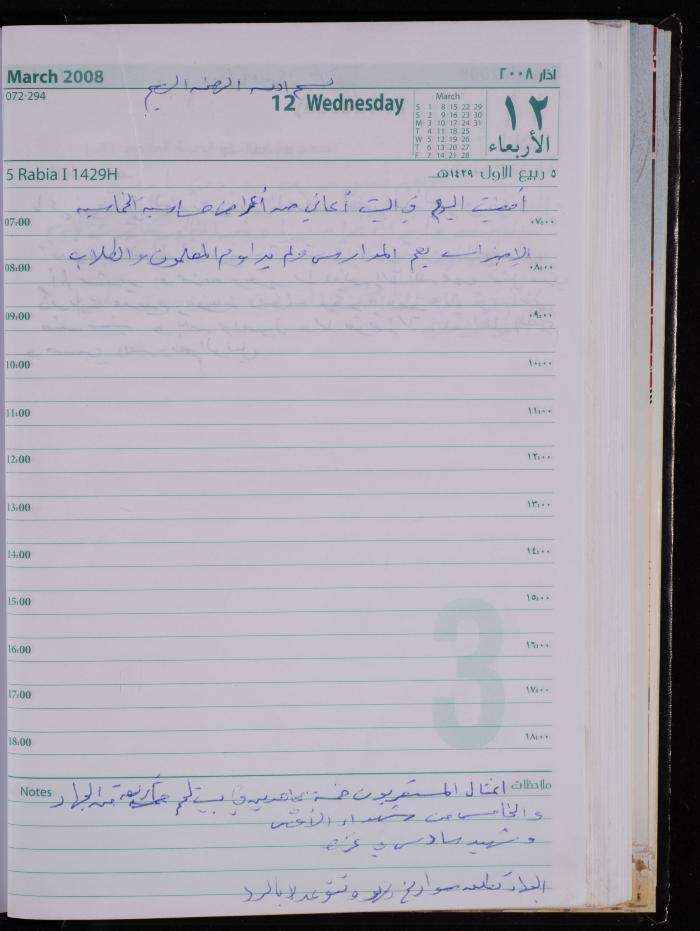 March 2008
اذار ٢٠٠٨
بسم الله الرحمن الرحيم
072-294
12 Wednesday
March
S 1 8 15 22 29
S 2 9 16 23 30
M 3 10 17 24 31
T 4 11 18 25
W 5 12 19 26
T 6 13 20 27
F 7 14 21 28
١٢
الأربعاء
5 Rabia I 1429H
٥ ربيع الاول ١٤٢٩هـ
أمضيت اليوم في البيت أعاني من أعراض حساسية
07:00 ٠٧:٠٠
الإضراب يعم المدارس ولم يداوم المعلمون والطلاب
08:00 ٠٨:٠٠
09:00 ٠٩:٠٠
10:00 ١٠:٠٠
11:00 ١١:٠٠
12:00 ١٢:٠٠
13:00 ١٣:٠٠
14:00 ١٤:٠٠
15:00 ١٥:٠٠
16:00 ١٦:٠٠
17:00 ١٧:٠٠
18:00 ١٨:٠٠
3
Notes
ملاحظات
اغتال المستعربون خمسة مجاهدين في بيت لحم أربعة من الجهاد
والخامس من شهداء الأقصى
وشهيد سادس في غزة
الجهاد تطلق صواريخ وتتوعد بالرد